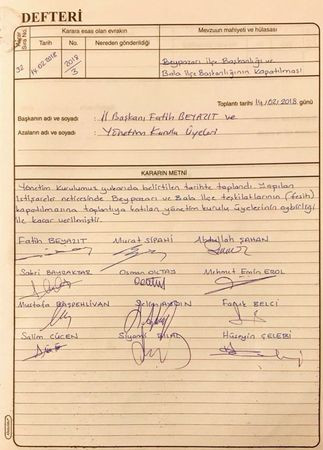 DEFTERİ
Karar Sıra No.
Karara esas olan evrakın
Mevzuun mahiyeti ve hülasası
Tarih
No.
Nereden gönderildiği
32
14.02.2018
2018
3
Beypazarı ilçe Başkanlığı ve
Bala ilçe Başkanlığının Kapatılması
Toplantı tarihi 14/02/2018 günü
Başkanın adı ve soyadı : İl Başkanı Fatih BEYAZIT ve
Azaların adı ve soyadı : Yönetim Kurulu Üyeleri
KARARIN METNİ
Yönetim Kurulumus yukarıda belirtilen tarihte toplandı. Yapılan
istişareler neticesinde Beypazarı ve Bala ilçe teşkilatlarının (fesih)
kapatılmasına toplantıya katılan yönetim kurulu üyelerinin oybirliği
ile karar verilmiştir.
Fatih BEYAZIT Murat SİPAHİ Abdullah ŞAHAN
Sabri BAYRAKTAR Osman OKTAY Mehmet Emin EROL
Mustafa BAŞPEHLİVAN Selim AYDIN Faruk BELCİ
Salim CÜCEN Siyami BİLAL Hüseyin ÇELEBİ